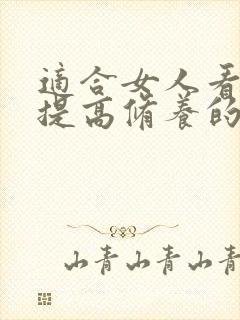 適合女人看
提高修養的
山青山青山青